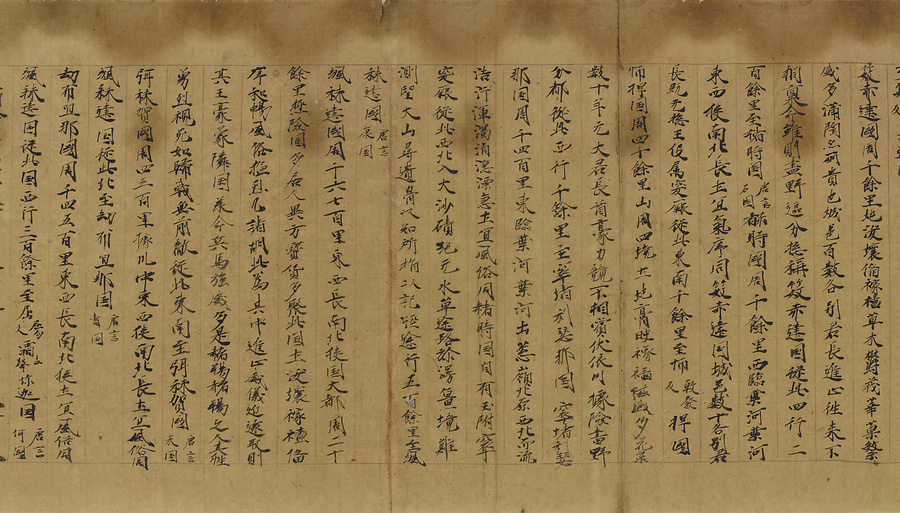 笯赤建國周千餘里地沃壤俻稼穡草木欝茂華菓繁
盛多蒲陶亦所貴也城邑百數各別君長進止往來不
相稟命雖則畫野區分惣稱笯赤建國從此西行二
百餘里至赭時國唐言石國赭時國周千餘里西臨葉河葉河
東西狹南北長土宜氣序同笯赤建國城邑數十各別君
長既无惣主役属突厥從此東南千餘里至怖敷發反捍國
怖捍國周四千餘里山周四境土地膏腴稼穡滋盛多花菓
數十年无大君長酋豪力競不相賓伏依川據險畫野
分都從此西行千餘里至窣堵利瑟那国窣堵利瑟
那国周千四百里東臨葉河葉河出葱嶺北原西北而流
浩汗渾濁汨淴漂急土宜風俗同赭時國自有王附窣
突厥從此西北入大沙磧絕无水草途路弥漫畺境難
測望大山尋遺骨以知所指以記經途行五百餘里至颯
秣建國唐言康国
颯秣建國周千六七百里東西長南北狹國大都周二十
餘里極險固多居人異方寶貨多聚此國土沃壤稼穡俻
序和暢風俗猛烈凡諸胡此爲其中進止威儀近遠取則
其王豪勇隣国承命兵馬強盛多是赭羯赭羯之人其性
勇烈視死如歸戰無前敵從此東南至弭秣賀國唐言米国
弭秣賀國周四五百里據川中東西狹南北長土宜風俗同
颯秣建國從此北至劫布呾那國唐言曹国
劫布呾那國周千四五百里東西長南北狹土宜風俗同
颯秣建国從此國西行三百餘里至屈居勿反霜去聲你迦國唐言何國